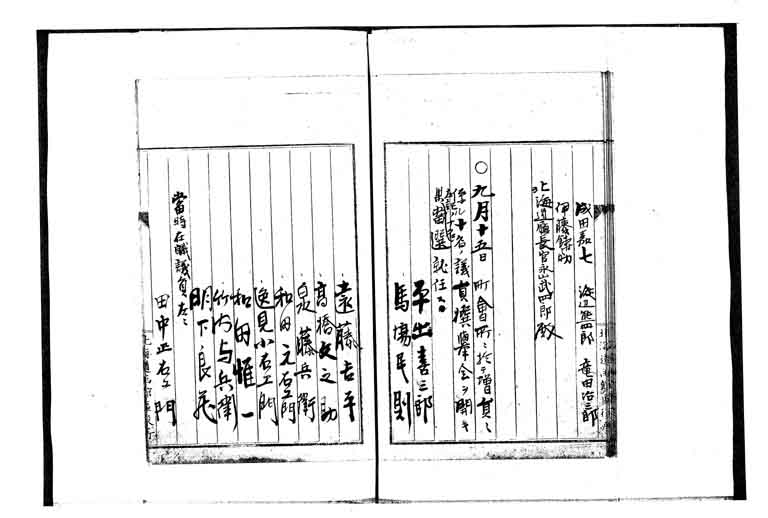 成田嘉七 渡辺熊四郎 重田治三郎
伊藤鋳助
北海道廳長官永山武四郎殿
〇九月十五日町會所ニ於テ増員ニ
十名ノ議員撰擧会ヲ開キ
當選就任ス
平出喜三郎
馬場民則
遠藤吉平
高橋文之助
泉藤兵衛
和田元右エ門
逸見小右エ門
和田惟一
竹内与兵衛
明下良花
當時在職議員左ニ
田中正右エ門